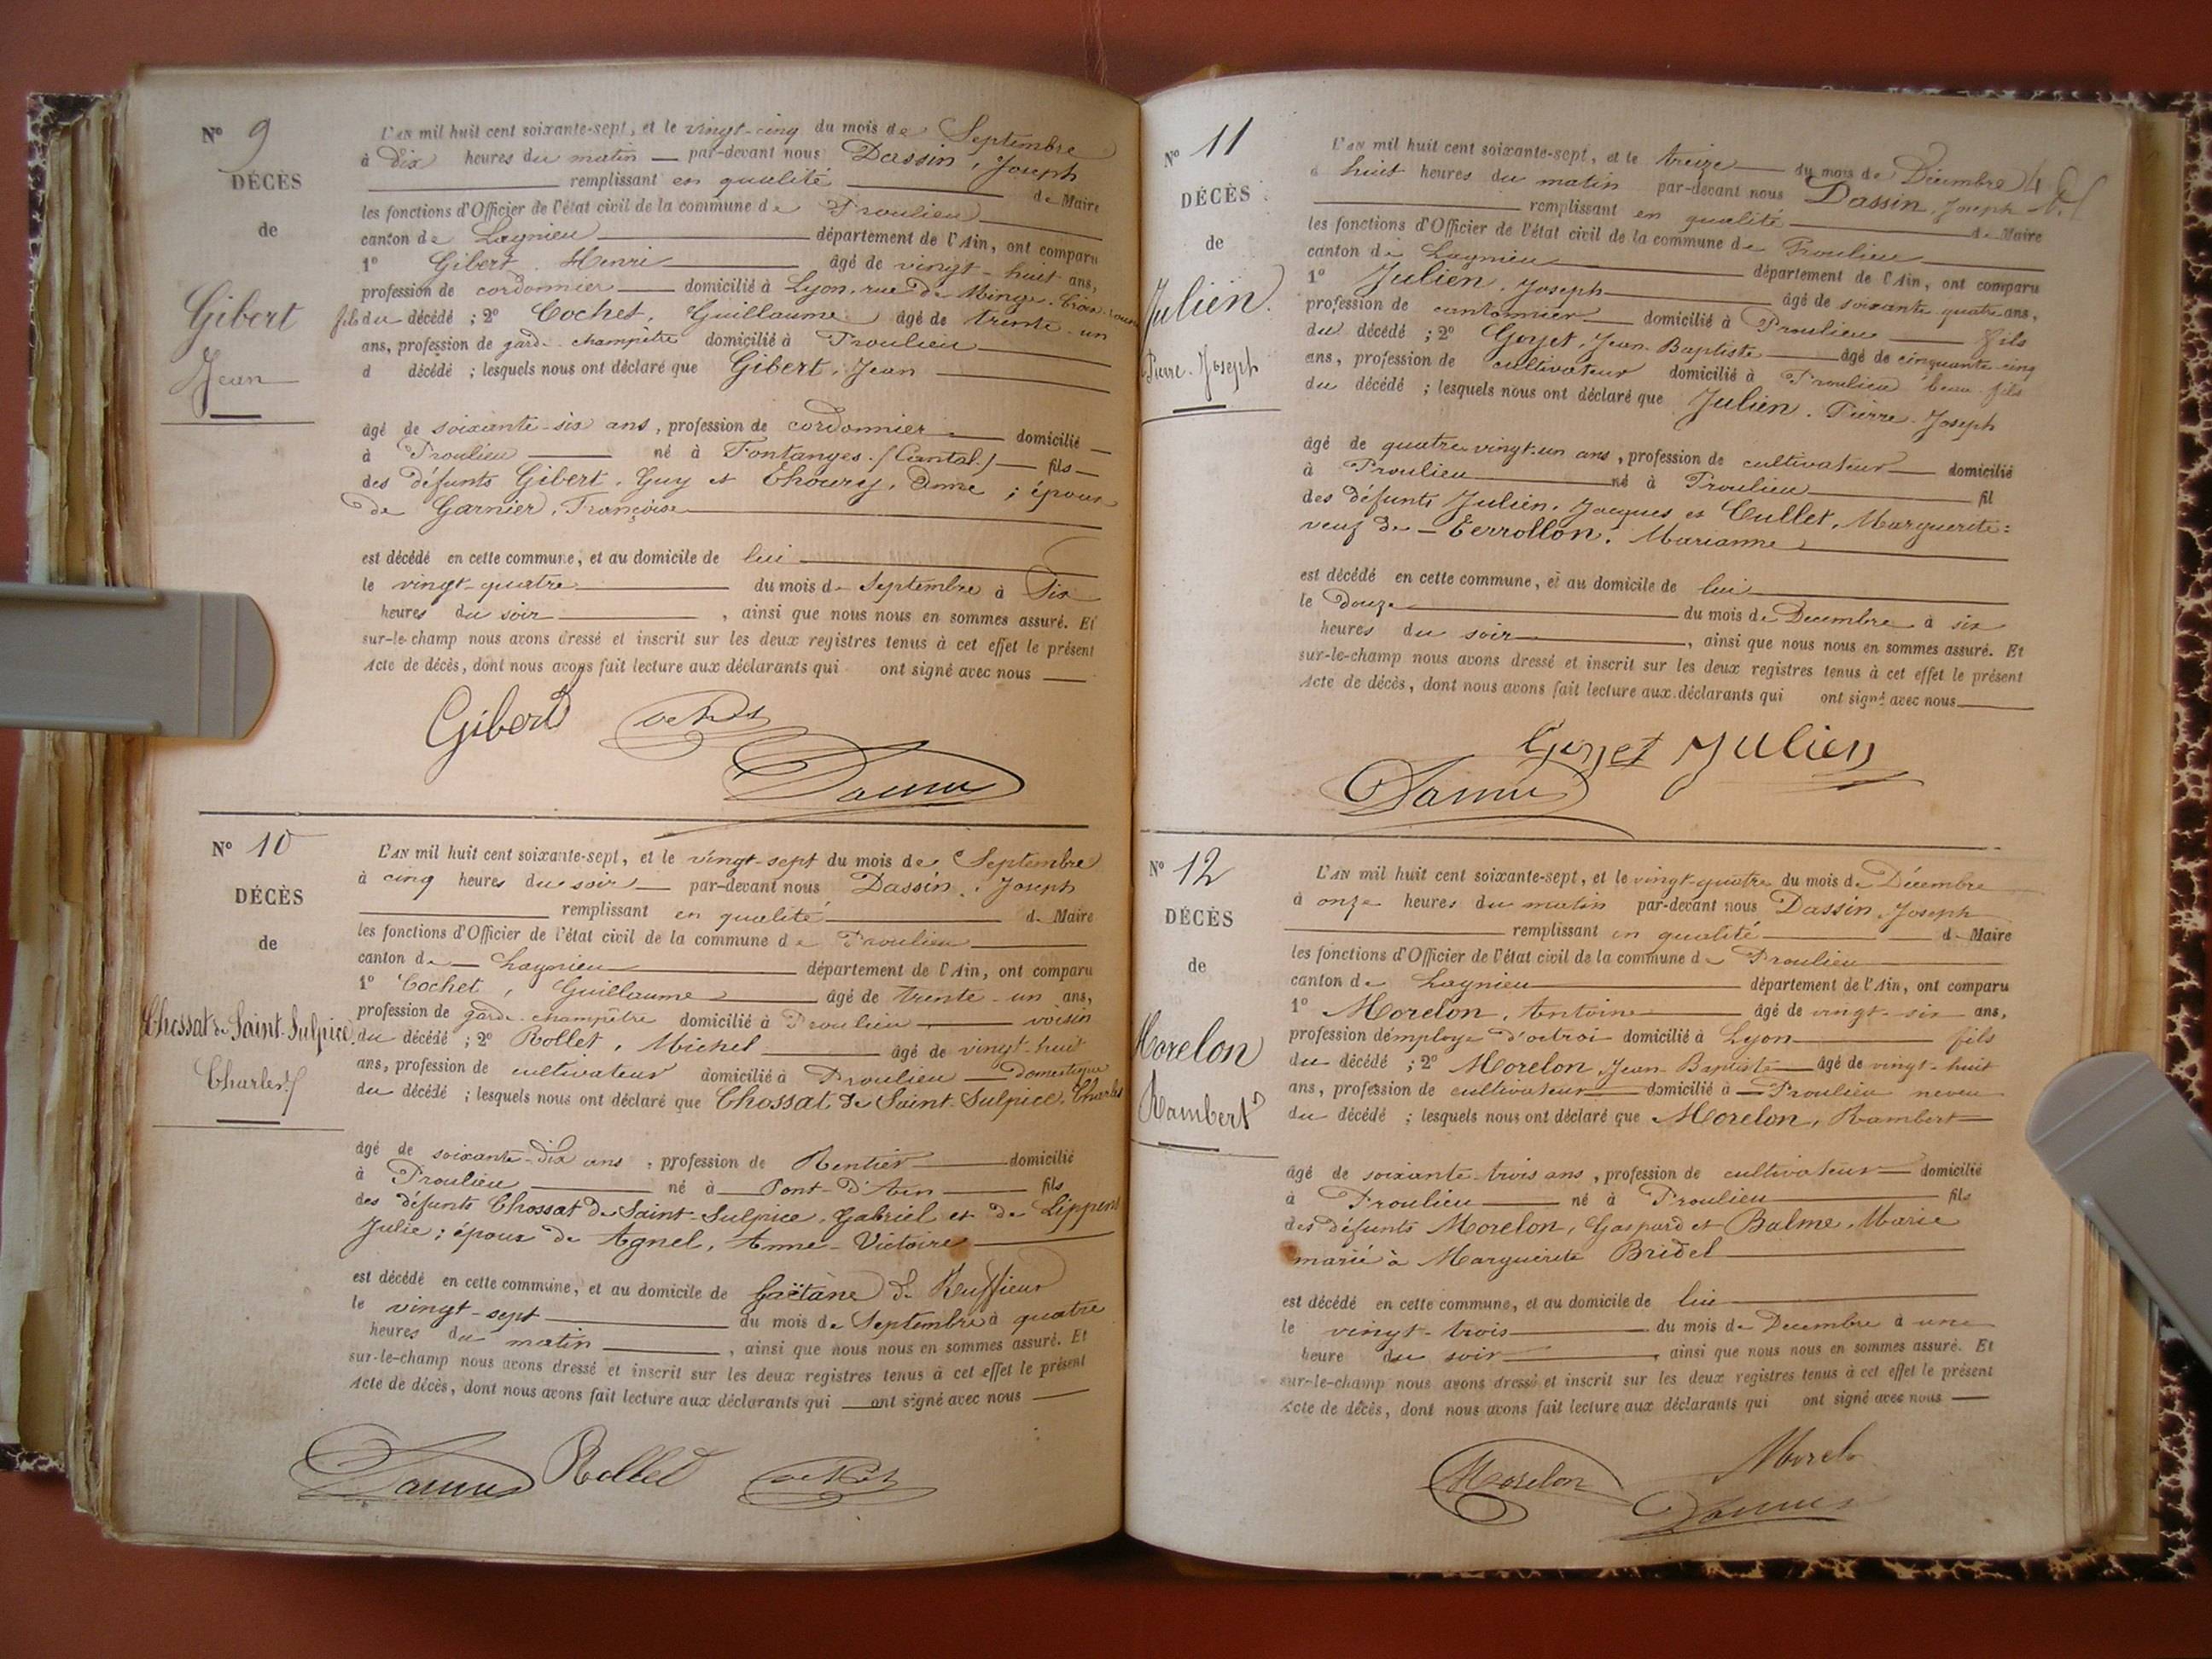 N° 9
DÉCÈS
de
Gibert
Jean
L'AN mil huit cent soixante-sept, et le vingt-cinq du mois de Septembre
à Dix heures du matin par-devant nous Dassin, Joseph
remplissant en qualité de Maire
les fonctions d'Officier de l'état civil de la commune de Proulieu
canton de Lagnieu département de l'Ain, ont comparu
1° Gibert, Henri âgé de vingt-huit ans,
profession de cordonnier domicilié à Lyon, rue de
fils du décédé ; 2° Cochet, Guillaume âgé de trente-un
ans, profession de garde-champêtre domicilié à Proulieu
d décédé ; lesquels nous ont déclaré que Gibert, Jean
âgé de soixante-six ans, profession de cordonnier domicilié
à Proulieu né à Fontanges (Cantal) fils
des défunts Gibert, Guy et Choury, Anne ; époux
de Garnier, Françoise
est décédé en cette commune, et au domicile de lui
le vingt-quatre du mois de Septembre à Six
heures du soir, ainsi que nous nous en sommes assuré. Et
sur-le-champ nous avons dressé et inscrit sur les deux registres tenus à cet effet le présent
Acte de décès, dont nous avons fait lecture aux déclarants qui ont signé avec nous
Gibert Cochet
Dassin
N° 10
DÉCÈS
de
Chossat de Saint-Sulpice
Charles
L'AN mil huit cent soixante-sept, et le vingt-sept du mois de Septembre
à cinq heures du soir par-devant nous Dassin, Joseph
remplissant en qualité de Maire
les fonctions d'Officier de l'état civil de la commune de Proulieu
canton de Lagnieu département de l'Ain, ont comparu
1° Cochet, Guillaume âgé de trente-un ans,
profession de garde-champêtre domicilié à Proulieu voisin
du décédé ; 2° Rollet, Michel âgé de vingt-huit
ans, profession de cultivateur domicilié à Proulieu Domestique
du décédé ; lesquels nous ont déclaré que Chossat de Saint-Sulpice, Charles
âgé de soixante-dix ans, profession de Rentier domicilié
à Proulieu né à Pont-d'Ain fils
des défunts Chossat de Saint-Sulpice, Gabriel et de Lippens
Julie ; époux de Agnel, Anne-Victoire
est décédé en cette commune, et au domicile de Gaëtane de Ruffieux
le vingt-sept du mois de Septembre à quatre
heures du matin, ainsi que nous nous en sommes assuré. Et
sur-le-champ nous avons dressé et inscrit sur les deux registres tenus à cet effet le présent
Acte de décès, dont nous avons fait lecture aux déclarants qui ont signé avec nous
Dassin Rollet Cochet
N° 11
DÉCÈS
de
Julien
Pierre-Joseph
L'AN mil huit cent soixante-sept, et le treize du mois de Décembre
à huit heures du matin par-devant nous Dassin, Joseph
remplissant en qualité de Maire
les fonctions d'Officier de l'état civil de la commune de Proulieu
canton de Lagnieu département de l'Ain, ont comparu
1° Julien, Joseph âgé de soixante quatre ans,
profession de cantonnier domicilié à Proulieu fils
du décédé ; 2° Goyet, Jean-Baptiste âgé de cinquante-cinq
ans, profession de cultivateur domicilié à Proulieu beau-fils
du décédé ; lesquels nous ont déclaré que Julien, Pierre-Joseph
âgé de quatre-vingt-un ans, profession de cultivateur domicilié
à Proulieu né à Proulieu fil
des défunts Julien, Jacques et Cullet, Marguerite :
veuf de Terrollon, Marianne
est décédé en cette commune, et au domicile de lui
le Douze du mois de Decembre à six
heures du soir, ainsi que nous nous en sommes assuré. Et
sur-le-champ nous avons dressé et inscrit sur les deux registres tenus à cet effet le présent
Acte de décès, dont nous avons fait lecture aux déclarants qui ont signé avec nous
Goyet Julien
Dassin
N° 12
DÉCÈS
de
Morelon
Rambert
L'AN mil huit cent soixante-sept, et le vingt-quatre du mois de Décembre
à onze heures du matin par-devant nous Dassin, Joseph
remplissant en qualité de Maire
les fonctions d'Officier de l'état civil de la commune de Proulieu
canton de Lagnieu département de l'Ain, ont comparu
1° Morelon, Antoine âgé de vingt-six ans,
profession d'employe d'octroi domicilié à Lyon fils
du décédé ; 2° Morelon, Jean-Baptiste âgé de vingt-huit
ans, profession de cultivateur domicilié à Proulieu neveu
du décédé ; lesquels nous ont déclaré que Morelon, Rambert
âgé de soixante-trois ans, profession de cultivateur domicilié
à Proulieu né à Proulieu fils
des défunts Morelon, Gaspard et Balme, Marie
marié à Marguerite Bridel
est décédé en cette commune, et au domicile de lui
le vingt-trois du mois de Decembre à une
heure du soir, ainsi que nous nous en sommes assuré. Et
sur-le-champ nous avons dressé et inscrit sur les deux registres tenus à cet effet le présent
Acte de décès, dont nous avons fait lecture aux déclarants qui ont signé avec nous
Morelon Morelon
Dassin